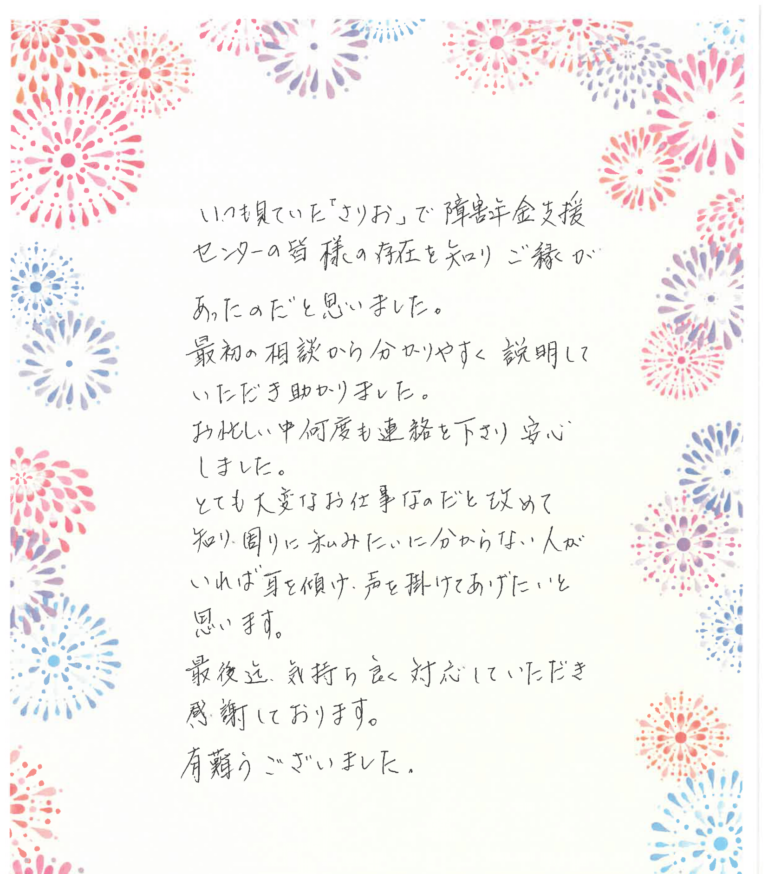 いつも見ていた「さりお」で障害年金支援
センターの皆様の存在を知りご縁が
あったのだと思いました。
最初の相談から分かりやすく説明して
いただき助かりました。
お忙しい中何度も連絡を下さり安心
しました。
とても大変なお仕事なのだと改めて
知り、周りに私みたいに分からない人が
いれば耳を傾け、声を掛けてあげたいと
思います。
最後迄、気持ち良く対応していただき
感謝しております。
有難うございました。